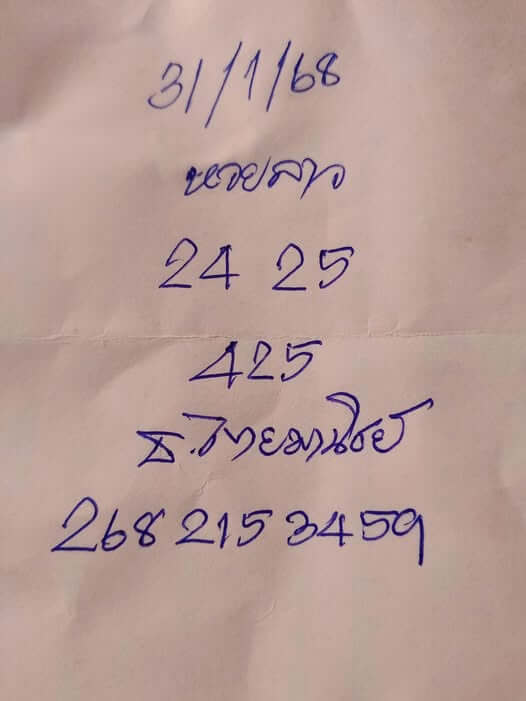 31/1/68
หวยลาว
24 25
425
ธ.ไทยพานิชย์
268 215 3459